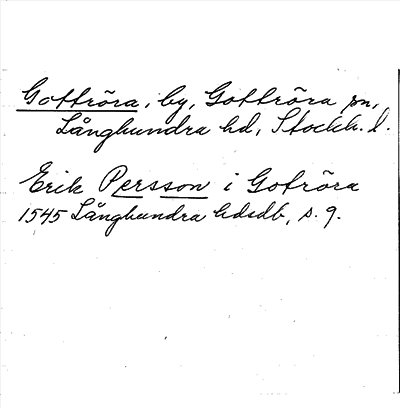 Gottröra, by, Gottröra sn,
Långhundra hd, Stockh. l.
Erik Persson i Gotröra
1545 Långhundra hdsdb, s. 9.